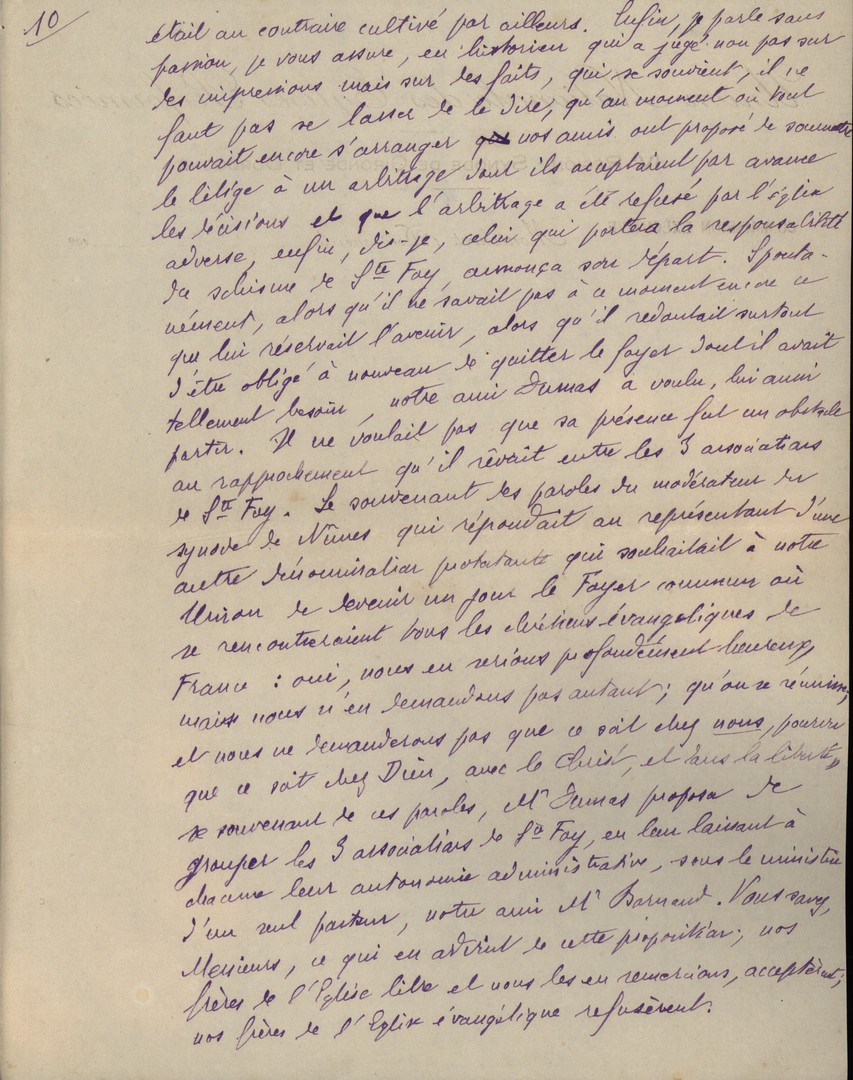 10
était au contraire cultivé par ailleurs. Enfin, je parle sans
passion, je vous assure, en historien qui a jugé non pas sur
des impressions mais sur des faits, qui se souvient, il ne
faut pas se lasser de le dire, qu'au moment où tout
pouvait encore s'arranger nos amis ont proposé de soumettre
le litige à un arbitrage dont ils acceptaient par avance
les décisions et que l'arbitrage a été refusé par l'Eglise
adverse, enfin, dis-je, celui qui portera la responsabilité
du schisme de Ste Foy, annonça son départ. Sponta-
nément, alors qu'il ne savait pas à ce moment encore ce
que lui réservait l'avenir, alors qu'il redoutait surtout
d'être obligé à nouveau de quitter le foyer dont il avait
tellement besoin, notre ami Dumas a voulu, lui aussi
partir. Il ne voulait pas que sa présence fut un obstacle
au rapprochement qu'il rêvait entre les 3 associations
de Ste Foy. Se souvenant des paroles du modérateur du
synode de Nîmes qui répondait au représentant d'une
autre dénomination protestante qui souhaitait à notre
Union de devenir un jour le Foyer commun où
se rencontreraient tous les chrétiens évangéliques de
France : oui, nous en serions profondément heureux,
mais nous n'en demandons pas autant ; qu'on se réunisse,
et nous ne demanderons pas que ce soit chez nous, pourvu
que ce soit chez Dieu, avec le Christ, et dans la liberté"
se souvenant de ces paroles, Mr Dumas proposa de
grouper les 3 associations de Ste Foy, en leur laissant à
chacune leur autonomie administrative, sous le ministère
d'un seul pasteur, notre ami Mr Barnaud. Vous savez,
Messieurs, ce qui en advint de cette proposition ; nos
frères de l'Eglise libre et nous les en remercions, acceptèrent ;
nos frères de l'Eglise évangélique refusèrent.